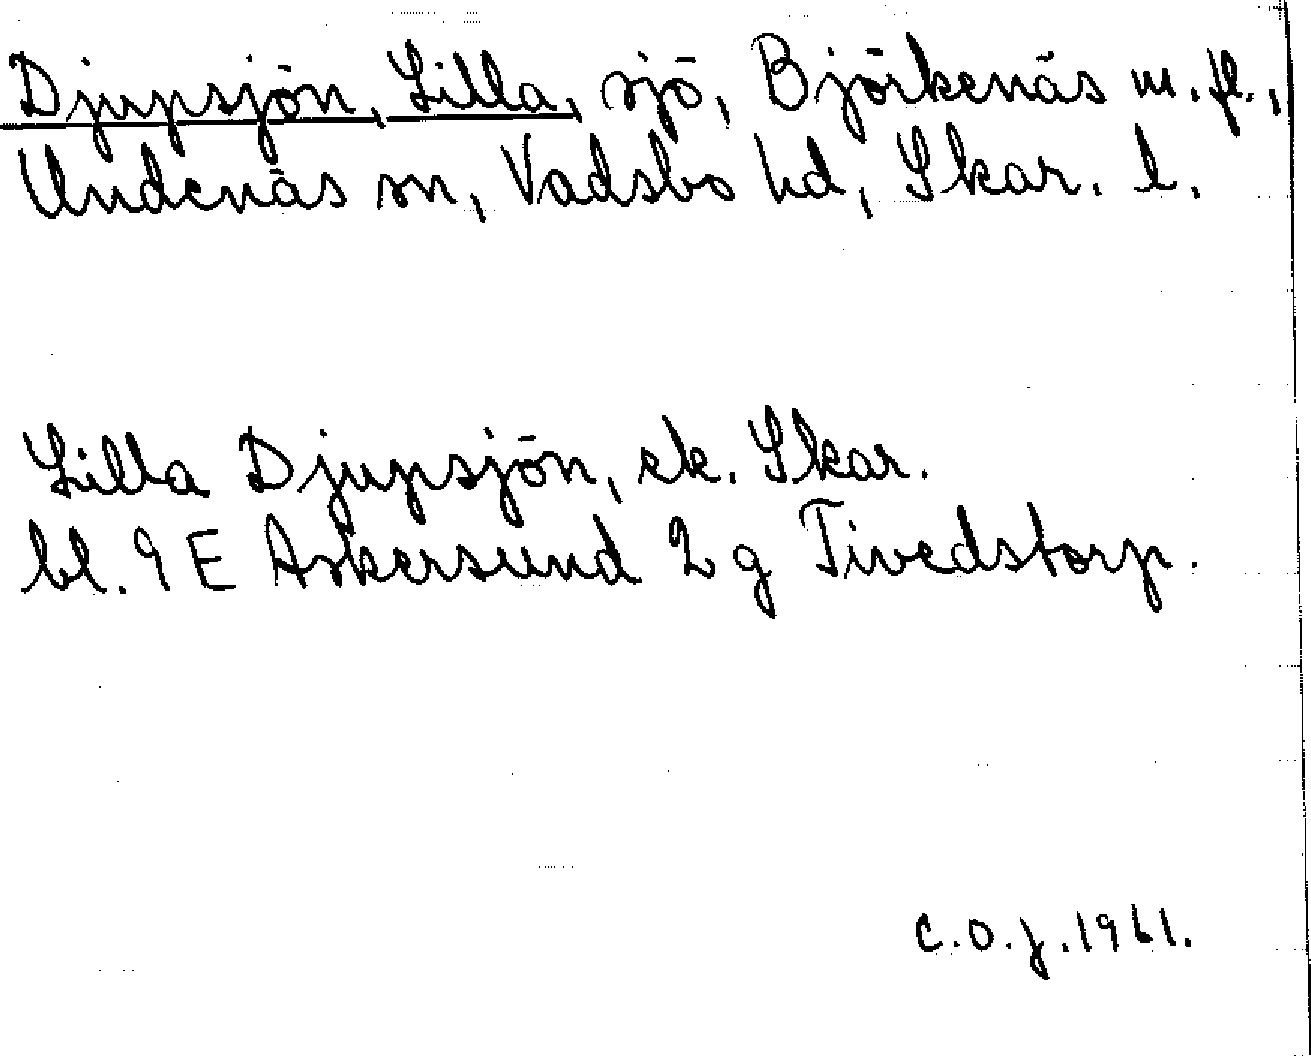 Djupsjön, Lilla, sjö, Björkenäs m. fl.,
Undenäs sn, Vadsbo hd, Skar. l.
Lilla Djupsjön, ek. Skar.
bl. 9 E Askersund 2 g Tivedstorp.
C.O.J. 1961.